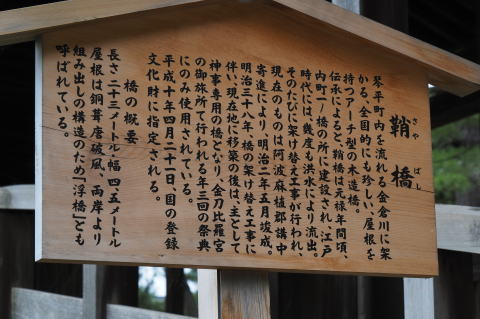 鞘橋
さや ばし
琴平町内を流れる金倉川に架
かる、全国的にも珍しい、屋根を
持つアーチ型の木造橋。
伝承によると、鞘橋は元禄年間頃、
内町一ノ橋の所に建設され、江戸
時代には、幾度も洪水により流出。
そのたびに架け替え工事が行われ、
現在のものは阿波麻植郡講中
寄進により、明治二年五月竣成。
明治三十八年、橋の架け替え工事に
伴い、現在地に移築の後は、主として
神事専用の橋となり、金刀比羅宮
の御旅所で行われる年三回の祭典
にのみ使用されている。
平成十年四月二十一日、国の登録
文化財に指定される。
橋の概要
長さ 二十三メートル 幅 四・五メートル
屋根は銅葺唐破風、両岸より
組み出しの構造のため「浮橋」とも
呼ばれている。